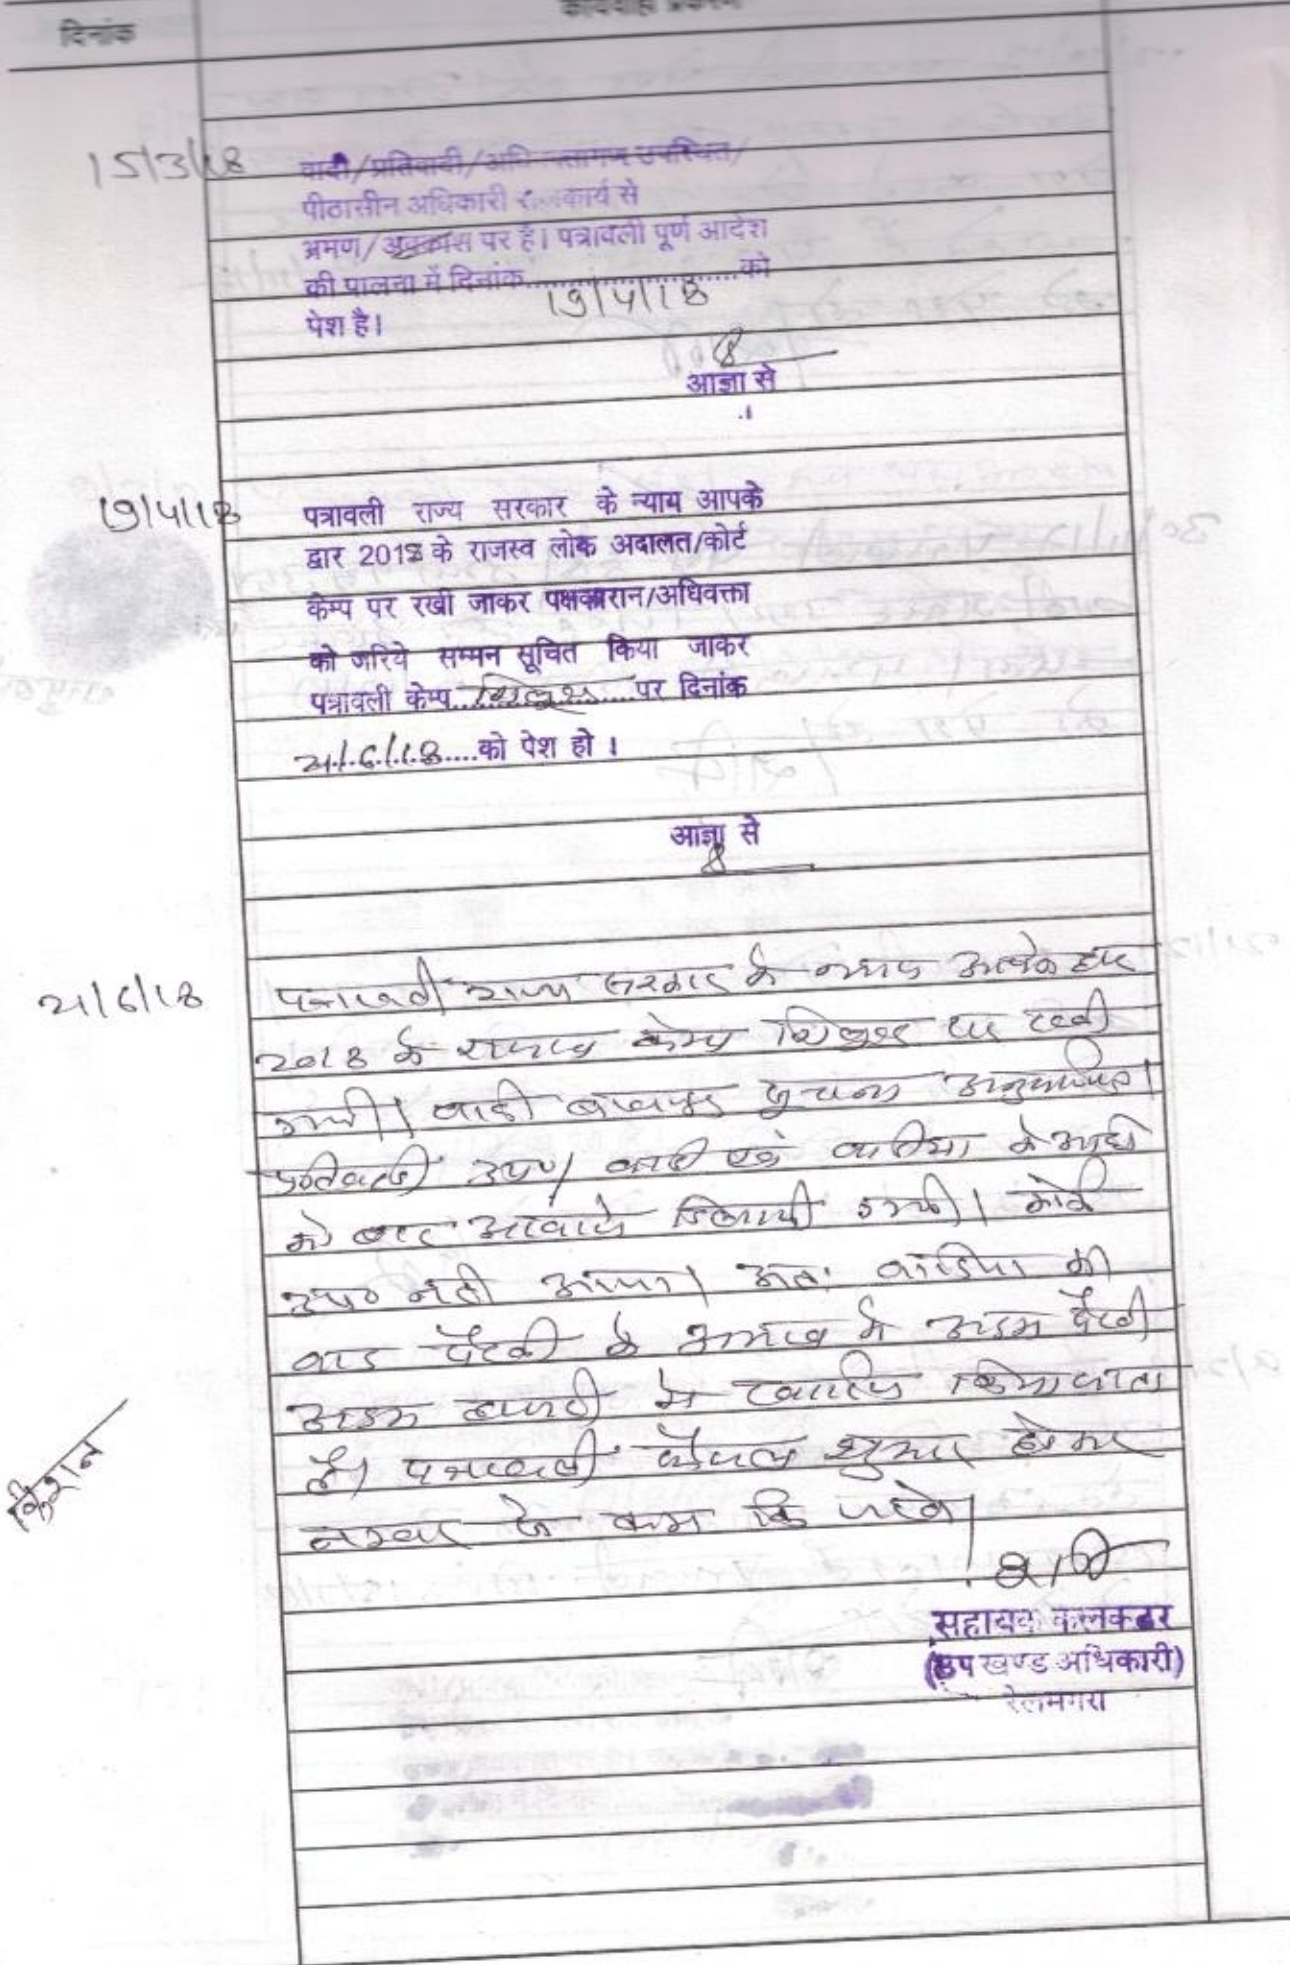 दिनांक
कार्यवाही प्रकरण
15/3/18
वादी/प्रतिवादी/अधिवक्तागण उपस्थित/
पीठासीन अधिकारी राजकार्य से
भ्रमण/अवकास पर है। पत्रावली पूर्ण आदेश
की पालना में दिनांक..............को
19/4/18
पेश है।
आज्ञा से
19/4/18
पत्रावली राज्य सरकार के न्याय आपके
द्वार 2018 के राजस्व लोक अदालत/कोर्ट
केम्प पर रखी जाकर पक्षकारान/अधिवक्ता
को जरिये सम्मन सूचित किया जाकर
पत्रावली केम्प.......पर दिनांक
21/6/18....को पेश हो ।
आज्ञा से
21/6/18
पत्रावली राज्य सरकार के न्याय आपके द्वार
2018 के केम्प पर रखी
गयी। वादी बावजूद सूचना अनुपस्थित।
प्रतिवादी उप०/ वादी एवं
को बार आवाजे दिलायी गयी। कोई
उप० नही आया। अतः का
वाद पैरवी के अभाव मे अदम पैरवी
अदम हाजरी मे खारिज किया जाता
है। पत्रावली फैसल शुमार होकर
नम्बर से कम
सहायक कलक्टर
(उप खण्ड अधिकारी)
रेलमगरा
किशन